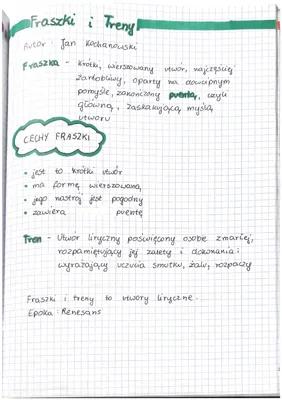 Fraszki i Treny
Autor: Jan Kochanowski
Fraszka - krótki, wierszowany utwór, najczęściej
żartobliwy, oparty na dowcipnym
pomyśle, zakończony puentą, czyli
główną, zaskakującą myślą
utworu
CECHY FRASZKI
• jest to krótki utwór
• ma formę wierszowaną
• jego nastrój jest pogodny
• zawiera puentę
Tren - Utwór liryczny poświęcony osobie zmarłej,
rozpamiętujący jej zalety i dokonania i
wyrażający uczucia smutku, żalu, rozpaczy
Fraszki i treny to utwory liryczne.
Epoka: Renesans